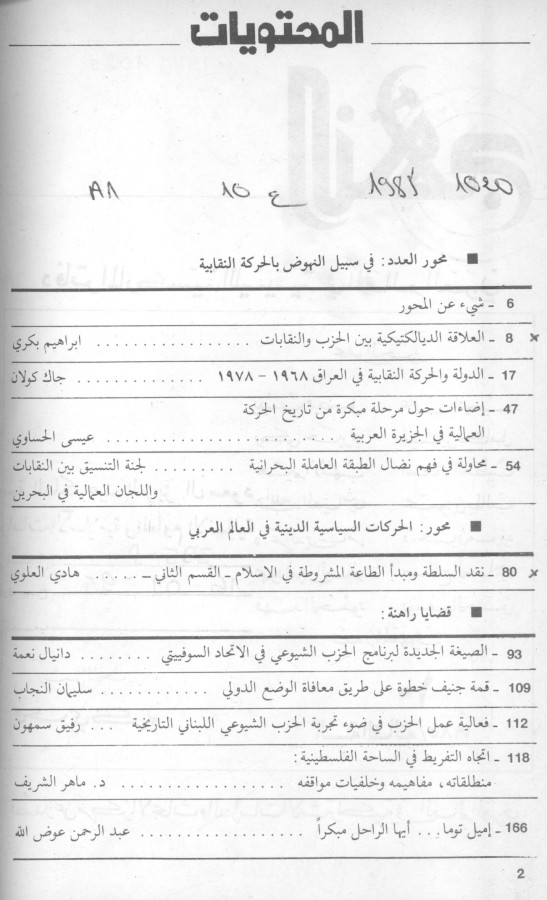 المحتويات
1020 1985 ع 10 A1
■ محور العدد: في سبيل النهوض بالحركة النقابية
6 ـ شيء عن المحور
8 ـ العلاقة الديالكتيكية بين الحزب والنقابات . . . . . . . . . . . . ابراهيم بكري
17 ـ الدولة والحركة النقابية في العراق ١٩٦٨ - ١٩٧٨ . . . . . . . . . . . . جاك كولان
47 ـ إضاءات حول مرحلة مبكرة من تاريخ الحركة
العمالية في الجزيرة العربية . . . . . . . . . . . . . . . . . . عيسى الحساوي
54 ـ محاولة في فهم نضال الطبقة العاملة البحرانية . . . . . . . . لجنة التنسيق بين النقابات
واللجان العمالية في البحرين
■ محور: الحركات السياسية الدينية في العالم العربي
80 ـ نقد السلطة ومبدأ الطاعة المشروطة في الاسلام ـ القسم الثاني ـ . . . . . هادي العلوي
■ قضايا راهنة:
93 ـ الصيغة الجديدة لبرنامج الحزب الشيوعي في الاتحاد السوفييتي . . . . . . . . دانيال نعمة
109 ـ قمة جنيف خطوة على طريق معافاة الوضع الدولي . . . . . . . . . . . . سليمان النجاب
112 ـ فعالية عمل الحزب في ضوء تجربة الحزب الشيوعي اللبناني التاريخية . . . رفيق سمهون
118 ـ اتجاه التفريط في الساحة الفلسطينية:
منطلقاته، مفاهيمه وخلفيات مواقفه . . . . . . . . . . . . . . . . د. ماهر الشريف
166 ـ إميل توما. . . أيها الراحل مبكراً . . . . . . . . . . . . . . . . . عبد الرحمن عوض الله
2